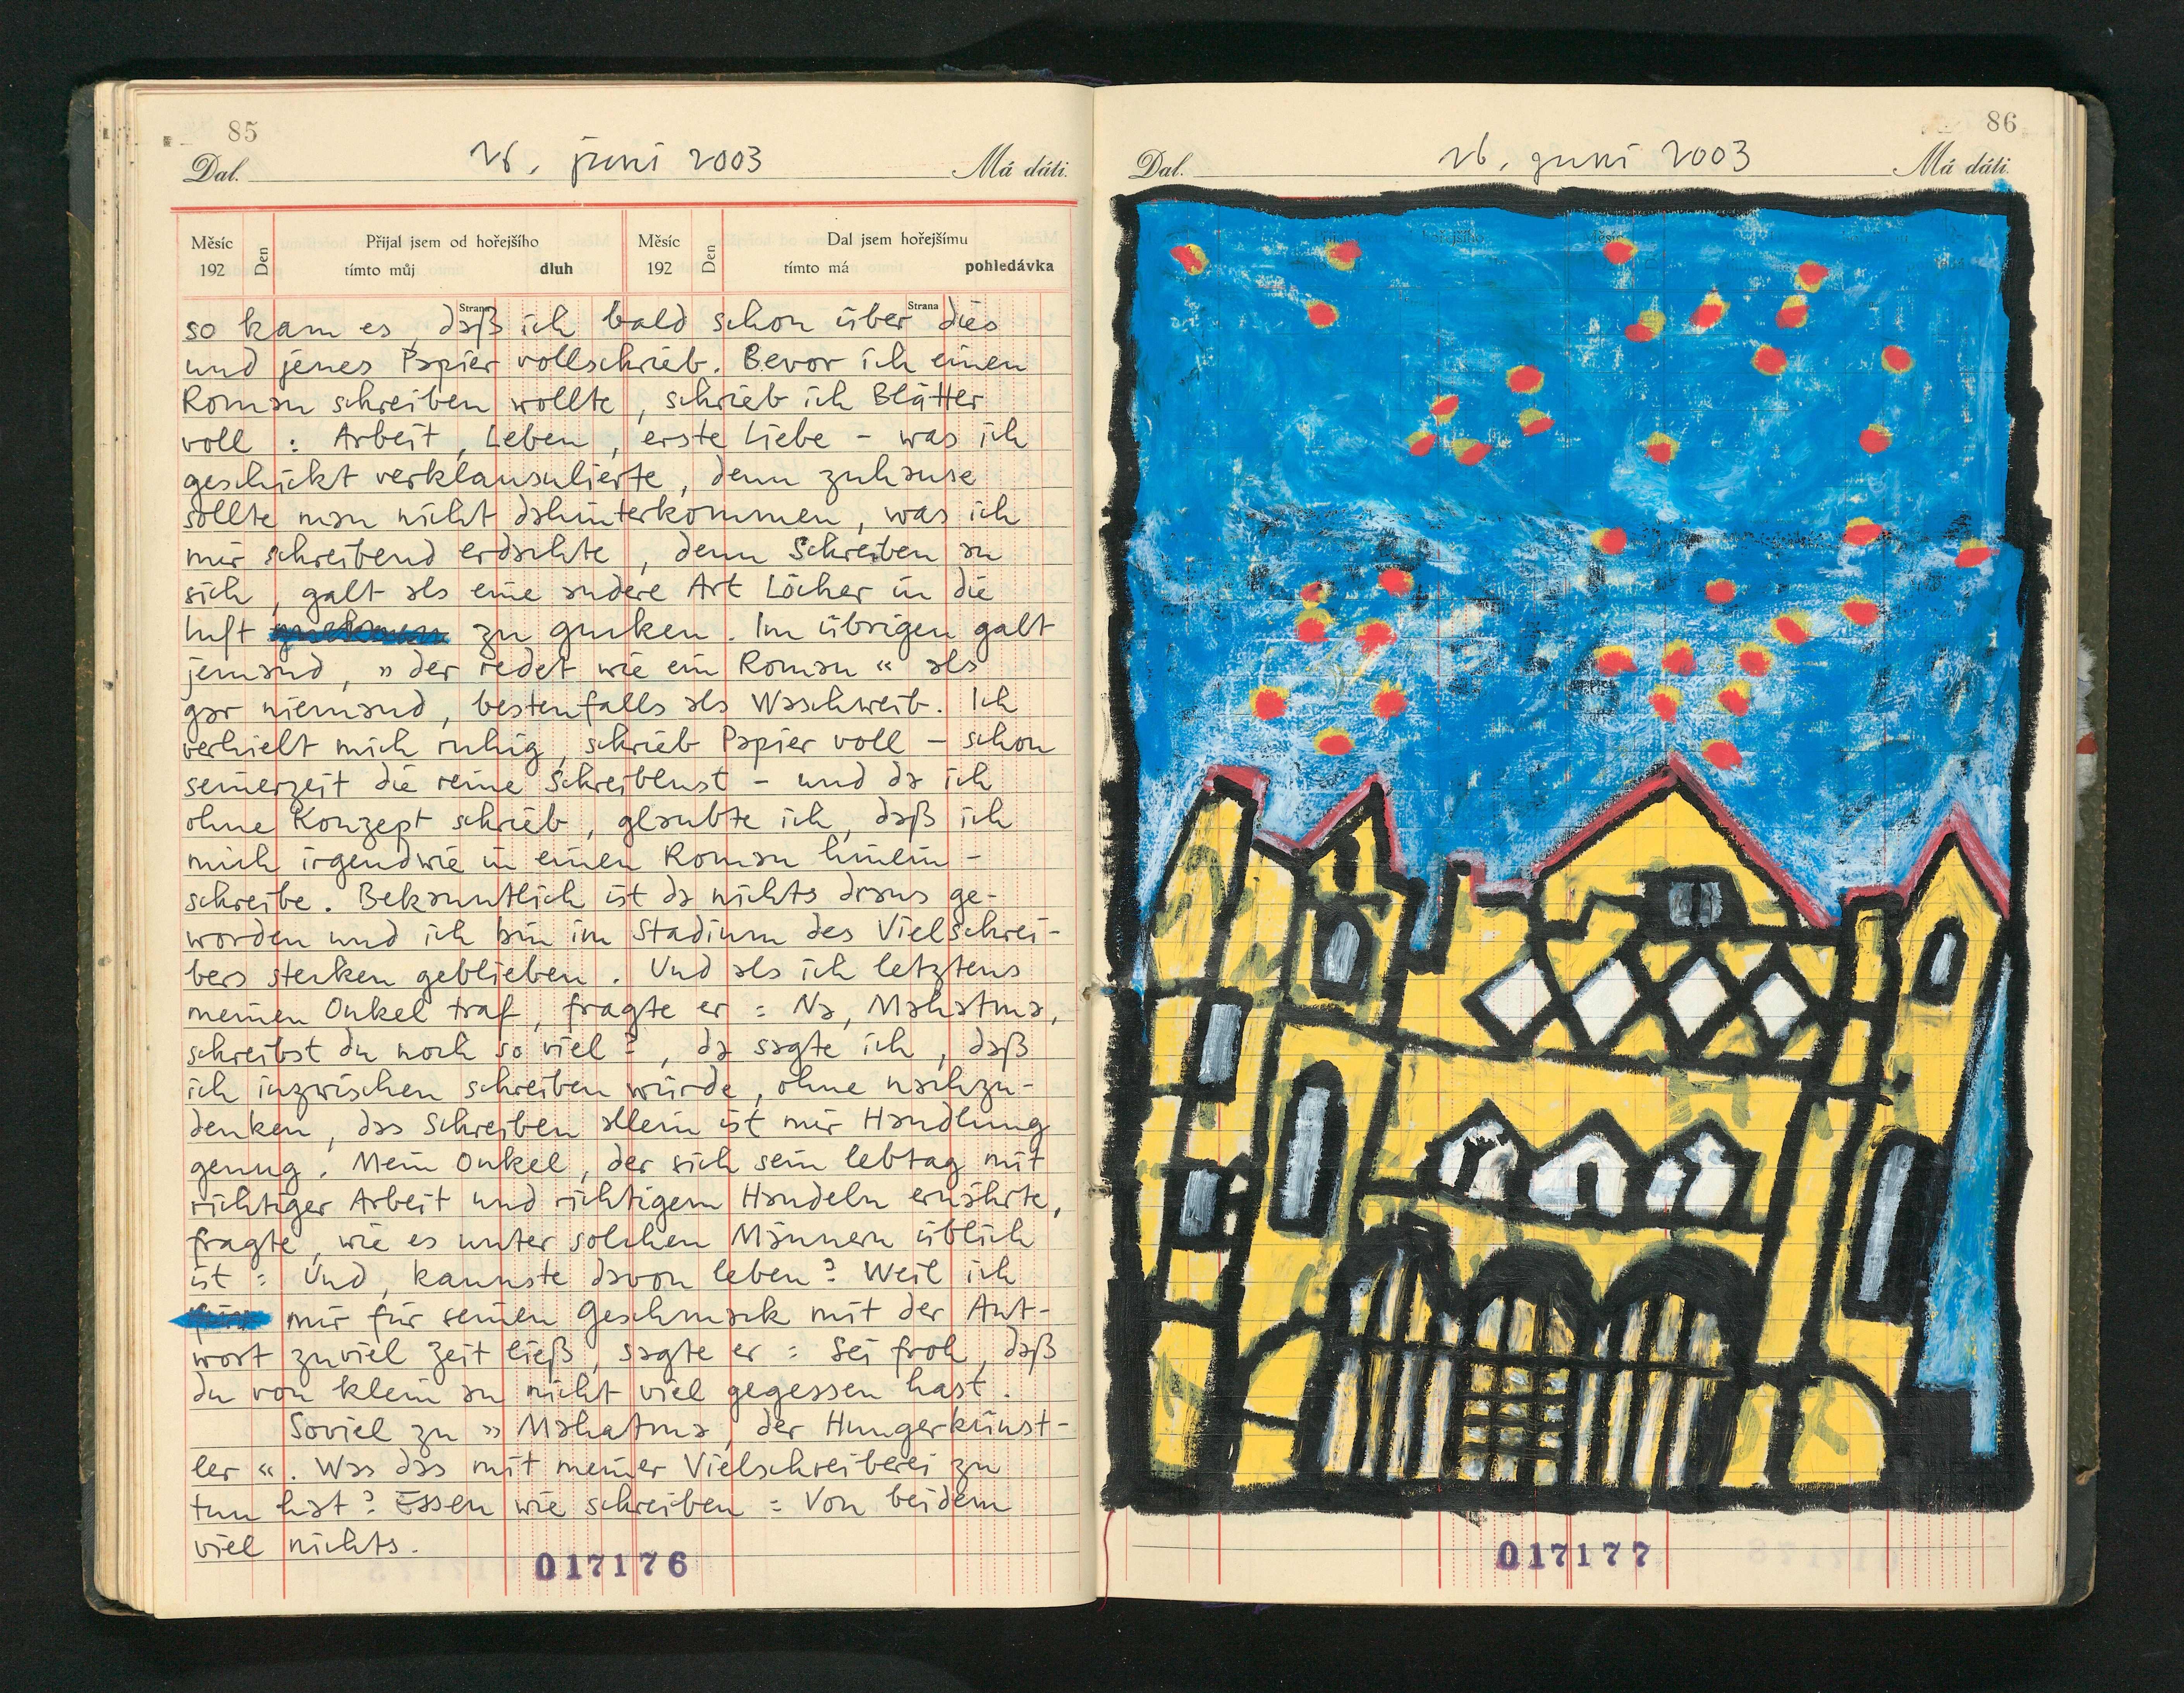 85
Dal.
26. juni 2003
Má dáti.
Měsíc
192
Den
Přijal jsem od hořejšího
tímto můj dluh
Měsíc
192
Den
Dal jsem hořejšímu
tímto má pohledávka
Strana
Strana
so kam es, daß ich bald schon über dies
und jenes Papier vollschrieb. Bevor ich einen
Roman schreiben wollte, schrieb ich Blätter
voll : Arbeit, Leben, erste Liebe - was ich
geschickt verklausulierte, denn zuhause
sollte man nicht dahinterkommen, was ich
mir schreibend erdachte, denn Schreiben an
sich, galt als eine andere Art Löcher in die
Luft zu gucken. Im übrigen galt
jemand, » der redet wie ein Roman « als
gar niemand, bestenfalls als Waschweib. Ich
verhielt mich ruhig, schrieb Papier voll - schon
seinerzeit die reine Schreiblust - und da ich
ohne Konzept schrieb, glaubte ich, daß ich
mich irgendwie in einen Roman hinein-
schreibe. Bekanntlich ist da nichts draus ge-
worden und ich bin im Stadium des Vielschrei-
bers stecken geblieben. Und als ich letztens
meinen Onkel traf, fragte er : Na, Mahatma,
schreibst du noch so viel?, da sagte ich, daß
ich inzwischen schreiben würde, ohne nachzu-
denken, das Schreiben allein ist mir Handlung
genug. Mein Onkel, der sich sein lebtag mit
richtiger Arbeit und richtigem Handeln ernährte,
fragte, wie es unter solchen Männern üblich
ist : Und, kannste davon leben? Weil ich
mir für seinen Geschmack mit der Ant-
wort zuviel Zeit ließ, sagte er : Sei froh, daß
du von klein an nicht viel gegessen hast.
Soviel zu » Mahatma, der Hungerkünst-
ler «. Was das mit meiner Vielschreiberei zu
tun hat? Essen wie schreiben : Von beidem
viel nichts.
017176
86
Dal.
26. juni 2003
Má dáti.
017177